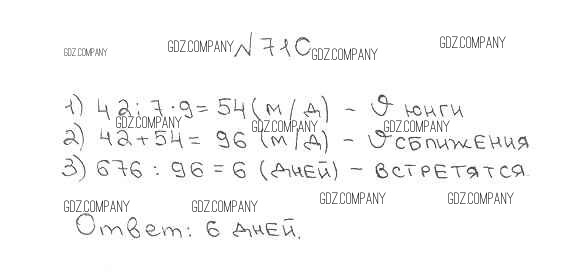 GDZ.COMPANY GDZ.COMPANY №710 GDZ.COMPANY GDZ.COMPANY
1) 42 : 7 · 9 = 54 (м/д) – υ юнги
GDZ.COMPANY GDZ.COMPANY GDZ.COMPANY
2) 42 + 54 = 96 (м/д) – υ сближения
3) 676 : 96 = 6 (дней) – встретятся.
GDZ.COMPANY GDZ.COMPANY GDZ.COMPANY GDZ.COMPANY
Ответ: 6 дней.